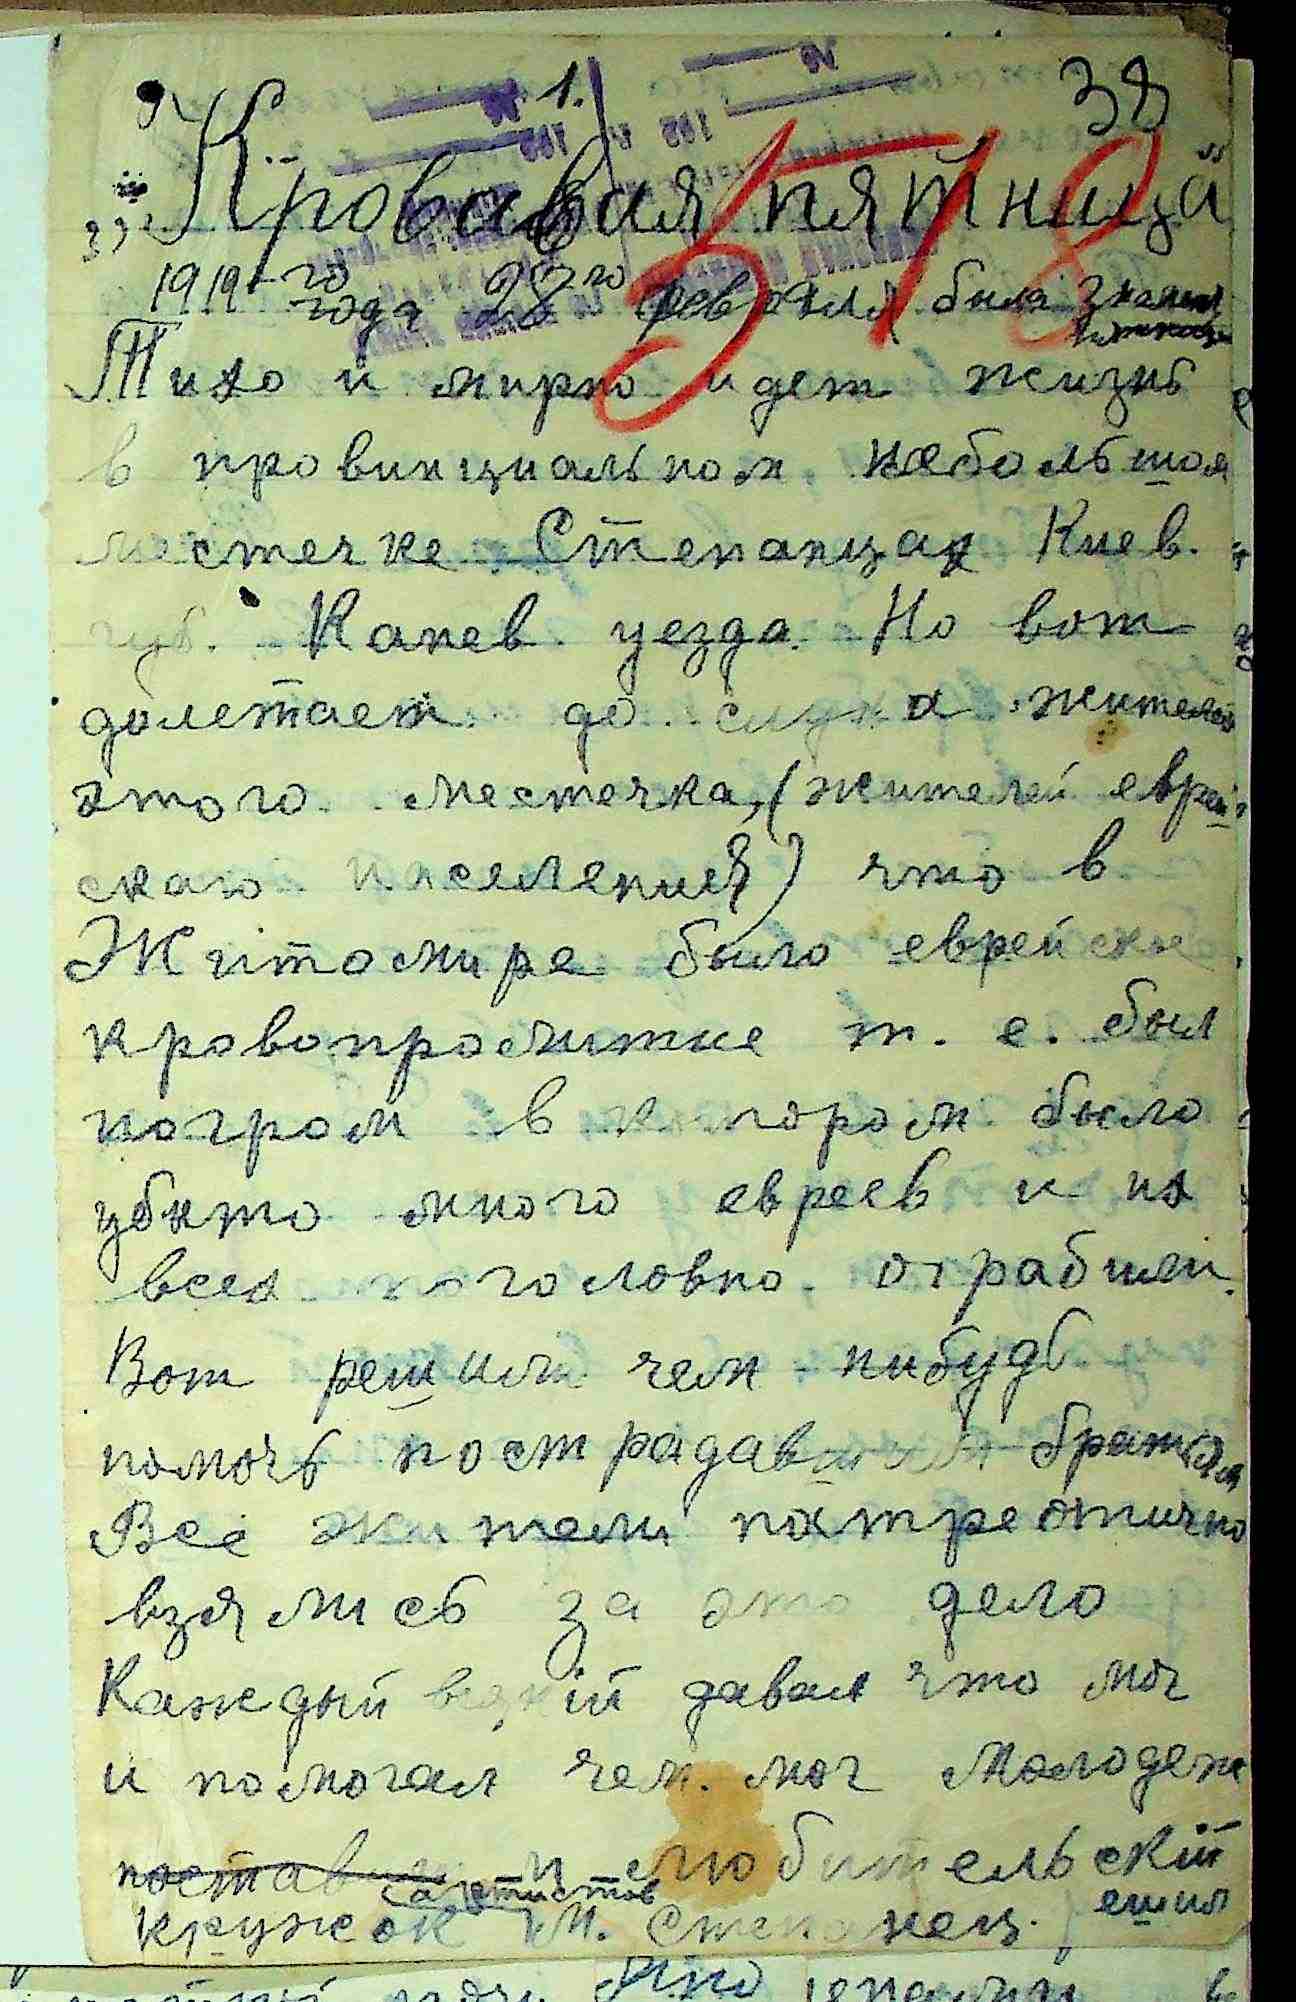 1.
38
518
„Кровавая пятница“
1919-го года 28го февраля была
Тихо и мирно идет жизнь
в провинциальном, небольшом
местечке Степанцах Киев.
губ. Канев. уезда. Но вот
долетает до слуха жителей
этого местечка, (жителей еврей-
скаго населения) что в
Житомире было еврейское
кровопролитие т. е. был
погром в котором было
убито много евреев и их
всех поголовно ограбили.
Вот решили чем нибудь
помочь пострадавшим братьям
Все жители патреотично
взялись за это дело
Каждый всякій давал что мог
и помогал чем мог Молодежь
поставил и любительскій
с артистов
кружок М. Степанец. решил